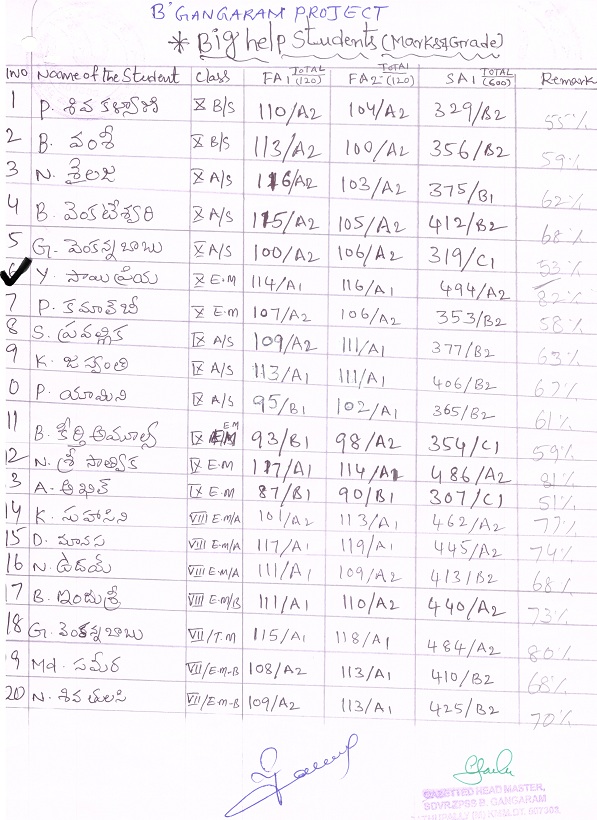 B' GANGARAM PROJECT
* Big help Students (Marks & Grade)
SNO Name of the Student Class FA1 TOTAL (120) FA2 TOTAL (120) SA1 TOTAL (600) Remark
1 P. శివ కళ్యాణి X B/S 110/A2 104/A2 329/B2 55%
2 B. వంశీ X B/S 113/A2 100/A2 356/B2 59%
3 N. శైలజ X A/S 116/A2 103/A2 375/B1 62%
4 B. వెంకటేశ్వరి X A/S 115/A2 105/A2 412/B2 68%
5 G. వెంకన్న బాబు X A/S 100/A2 106/A2 319/C1 53%
6 Y. సాయి ప్రియ X E.M 114/A1 116/A1 494/A2 82%
7 P. కమాల్ బీ X E.M 107/A2 106/A2 353/B2 58%
8 S. ప్రవల్లిక IX A/S 109/A2 111/A1 377/B2 63%
9 K. జస్వంతి IX A/S 113/A1 111/A1 406/B2 67%
0 P. యామిని IX A/S 95/B1 102/A1 365/B2 61%
11 B. కీర్తి అమూల్య IX EM 93/B1 98/A2 354/C1 59%
12 N. శ్రీ సాత్విక IX E.M 117/A1 114/A1 486/A2 81%
3 A. అఖిల్ IX E.M 87/B1 90/B1 307/C1 51%
14 K. సుహాసిని VIII E.M/A 101/A2 113/A1 462/A2 77%
15 D. మానస VIII E.M/A 117/A1 119/A1 445/A2 74%
16 N. ఉదయ్ VIII E.M/A 111/A1 109/A2 413/B2 68%
17 B. ఇందుశ్రీ VIII E.M/B 111/A1 110/A2 440/A2 73%
18 G. వెంకన్నబాబు VII/T.M 115/A1 118/A1 484/A2 80%
19 Md. సమీర VII/E.M-B 108/A2 113/A1 410/B2 68%
20 N. శివ తులసి VII/E.M-B 109/A2 113/A1 425/B2 70%
GAZETTED HEAD MASTER,
B. GANGARAM